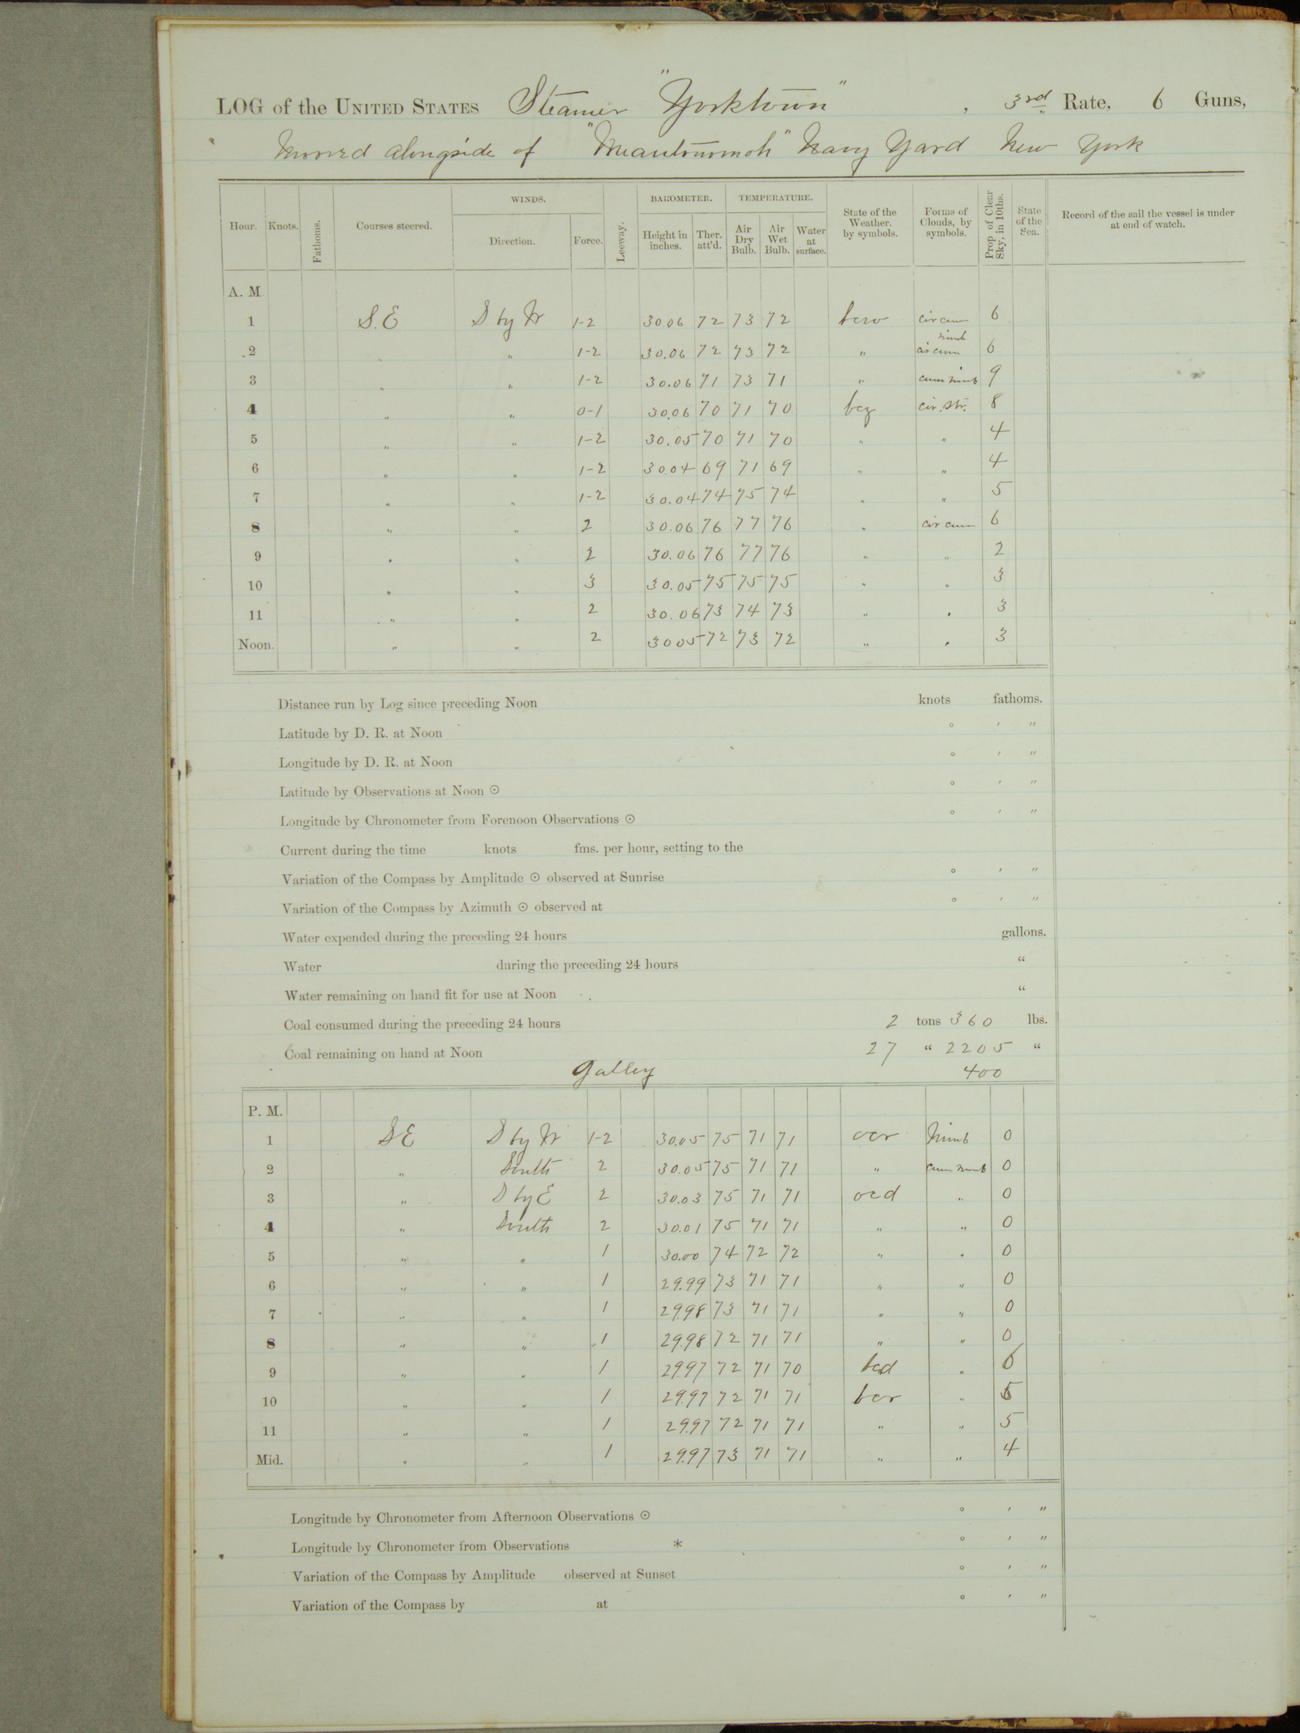 LOG of the UNITED STATES Steamer "Yorktown", 3rd Rate, 6 Guns,
Moored alongside of "Miantonomoh" Navy Yard New York
Hour. Knots. Fathoms. Courses steered. WINDS. Direction. Force. Leeway. BAROMETER. Height in inches. Ther. att'd. TEMPERATURE. Air Dry Bulb. Air Wet Bulb. Water at surface. State of the Weather, by symbols. Forms of Clouds, by symbols. Prop of Clear Sky, in 10ths. State of the Sea. Record of the sail the vessel is under at end of watch.
A. M.
1 S.E S by W 1-2 30.06 72 73 72 bcw cir cum 6
2 " " 1-2 30.06 72 73 72 " cir cum nimb 6
3 " " 1-2 30.06 71 73 71 " cum nimb 9
4 " " 0-1 30.06 70 71 70 bcz cir. str. 8
5 " " 1-2 30.05 70 71 70 " " 4
6 " " 1-2 30.04 69 71 69 " " 4
7 " " 1-2 30.04 74 75 74 " " 5
8 " " 2 30.06 76 77 76 " cir cum 6
9 " " 2 30.06 76 77 76 " " 2
10 " " 3 30.05 75 75 75 " " 3
11 " " 2 30.06 73 74 73 " " 3
Noon. " " 2 30.05 72 73 72 " " 3
Distance run by Log since preceding Noon knots fathoms.
Latitude by D. R. at Noon ° ′ ″
Longitude by D. R. at Noon ° ′ ″
Latitude by Observations at Noon ☉ ° ′ ″
Longitude by Chronometer from Forenoon Observations ☉ ° ′ ″
Current during the time knots fms. per hour, setting to the
Variation of the Compass by Amplitude ☉ observed at Sunrise ° ′ ″
Variation of the Compass by Azimuth ☉ observed at ° ′ ″
Water expended during the preceding 24 hours gallons.
Water during the preceding 24 hours "
Water remaining on hand fit for use at Noon "
Coal consumed during the preceding 24 hours 2 tons 360 lbs.
Coal remaining on hand at Noon 27 " 2205 "
Galley 400
P. M.
1 SE S by W 1-2 30.05 75 71 71 ocr Nimb 0
2 " South 2 30.05 75 71 71 " cum nimb 0
3 " S by E 2 30.03 75 71 71 ocd " 0
4 " South 2 30.01 75 71 71 " " 0
5 " " 1 30.00 74 72 72 " " 0
6 " " 1 29.99 73 71 71 " " 0
7 " " 1 29.98 73 71 71 " " 0
8 " " 1 29.98 72 71 71 " " 0
9 " " 1 29.97 72 71 70 bcd " 6
10 " " 1 29.97 72 71 71 bcr " 5
11 " " 1 29.97 72 71 71 " " 5
Mid. " " 1 29.97 73 71 71 " " 4
Longitude by Chronometer from Afternoon Observations ☉ ° ′ ″
Longitude by Chronometer from Observations * ° ′ ″
Variation of the Compass by Amplitude observed at Sunset ° ′ ″
Variation of the Compass by at ° ′ ″